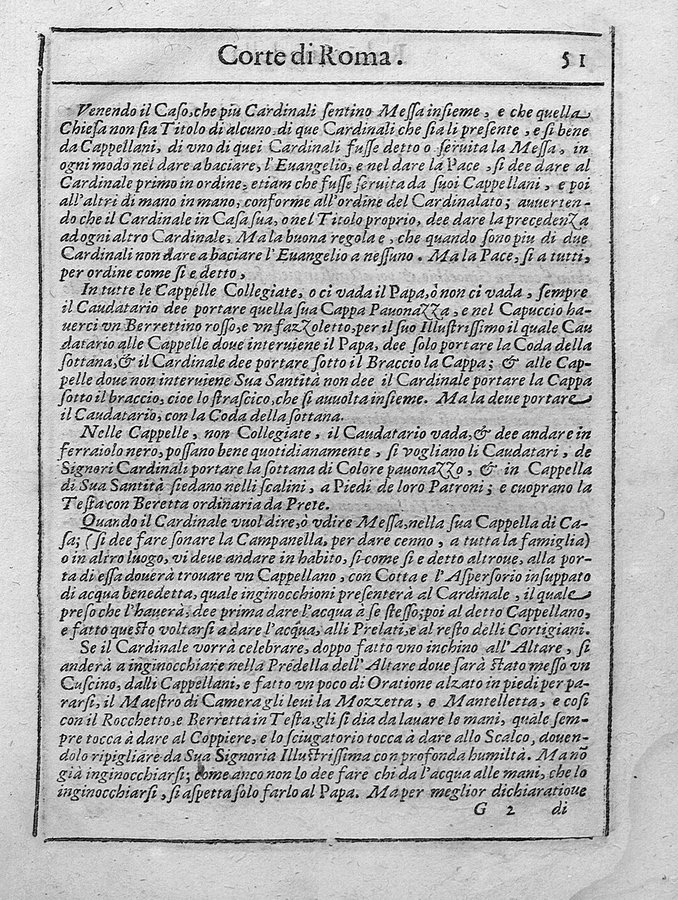 Corte di Roma. 51
Venendo il Caso, che più Cardinali ſentino Meſſa inſieme, e che quella
Chieſa non ſia Titolo di alcuno di que Cardinali che ſia li preſente, e ſi bene
da Cappellani, di vno di quei Cardinali fuſſe detto o ſeruita la Meſſa, in
ogni modo nel dare a baciare, l'Euangelio, e nel dare la Pace, ſi dee dare al
Cardinale primo in ordine, etiam che fuſſe ſeruita da ſuoi Cappellani, e poi
all'altri di mano in mano, conforme all'ordine del Cardinalato; auuerten-
do che il Cardinale in Caſa ſua, o nel Titolo proprio, dee dare la precedenza
ad ogni altro Cardinale, Ma la buona regola e, che quando ſono piu di due
Cardinali non dare a baciare l'Euangelio a neſſuno. Ma la Pace, ſi a tutti,
per ordine come ſi e detto,
In tutte le Cappelle Collegiate, o ci vada il Papa, ò non ci vada, ſempre
il Caudatario dee portare quella ſua Cappa Pauonazza, e nel Capuccio ha-
uerci vn Berrettino roſſo, e vn fazzoletto, per il ſuo Illuſtriſſimo il quale Cau
datario alle Cappelle doue interuiene il Papa, dee ſolo portare la Coda della
ſottana, & il Cardinale dee portare ſotto il Braccio la Cappa; & alle Cap-
pelle doue non interuiene Sua Santità non dee il Cardinale portare la Cappa
ſotto il braccio, cioe lo ſtraſcico, che ſi auuolta inſieme. Ma la deue portare
il Caudatario, con la Coda della ſottana.
Nelle Cappelle, non Collegiate, il Caudatario vada, & dee andare in
ferraiolo nero, poſſano bene quotidianamente, ſi vogliano li Caudatari, de
Signori Cardinali portare la ſottana di Colore pauonazzo, & in Cappella
di Sua Santità ſiedano nelli ſcalini, a Piedi de loro Patroni; e cuoprano la
Teſta con Beretta ordinaria da Prete.
Quando il Cardinale vuol dire, ò vdire Meſſa, nella ſua Cappella di Ca-
ſa; (ſi dee fare ſonare la Campanella, per dare cenno, a tutta la famiglia)
o in altro luogo, vi deue andare in habito, ſi come ſi e detto altroue, alla por-
ta di eſſa douerà trouare vn Cappellano, con Cotta e l'Aſperſorio inſuppato
di acqua benedetta, quale inginocchioni preſenterà al Cardinale, il quale
preſo che l'hauerà, dee prima dare l'acqua à ſe ſteſſo; poi al detto Cappellano,
e fatto queſto voltarſi a dare l'acqua, alli Prelati, e al reſto delli Cortigiani.
Se il Cardinale vorrà celebrare, doppo fatto vno inchino all'Altare, ſi
anderà a inginocchiare nella Predella dell'Altare doue ſarà ſtato meſſo vn
Cuſcino, dalli Cappellani, e fatto vn poco di Oratione alzato in piedi per pa-
rarſi, il Maeſtro di Camera gli leui la Mozzetta, e Mantelletta, e coſi
con il Rocchetto, e Berretta in Teſta, gli ſi dia da lauare le mani, quale ſem-
pre tocca à dare al Coppiere, e lo ſciugatorio tocca à dare allo Scalco, douen-
dolo ripigliare da Sua Signoria Illuſtriſſima con profonda humiltà. Ma nõ
già inginocchiarſi; come anco non lo dee fare chi da l'acqua alle mani, che lo
inginocchiarſi, ſi aſpetta ſolo farlo al Papa. Ma per meglior dichiaratioue
G 2 di